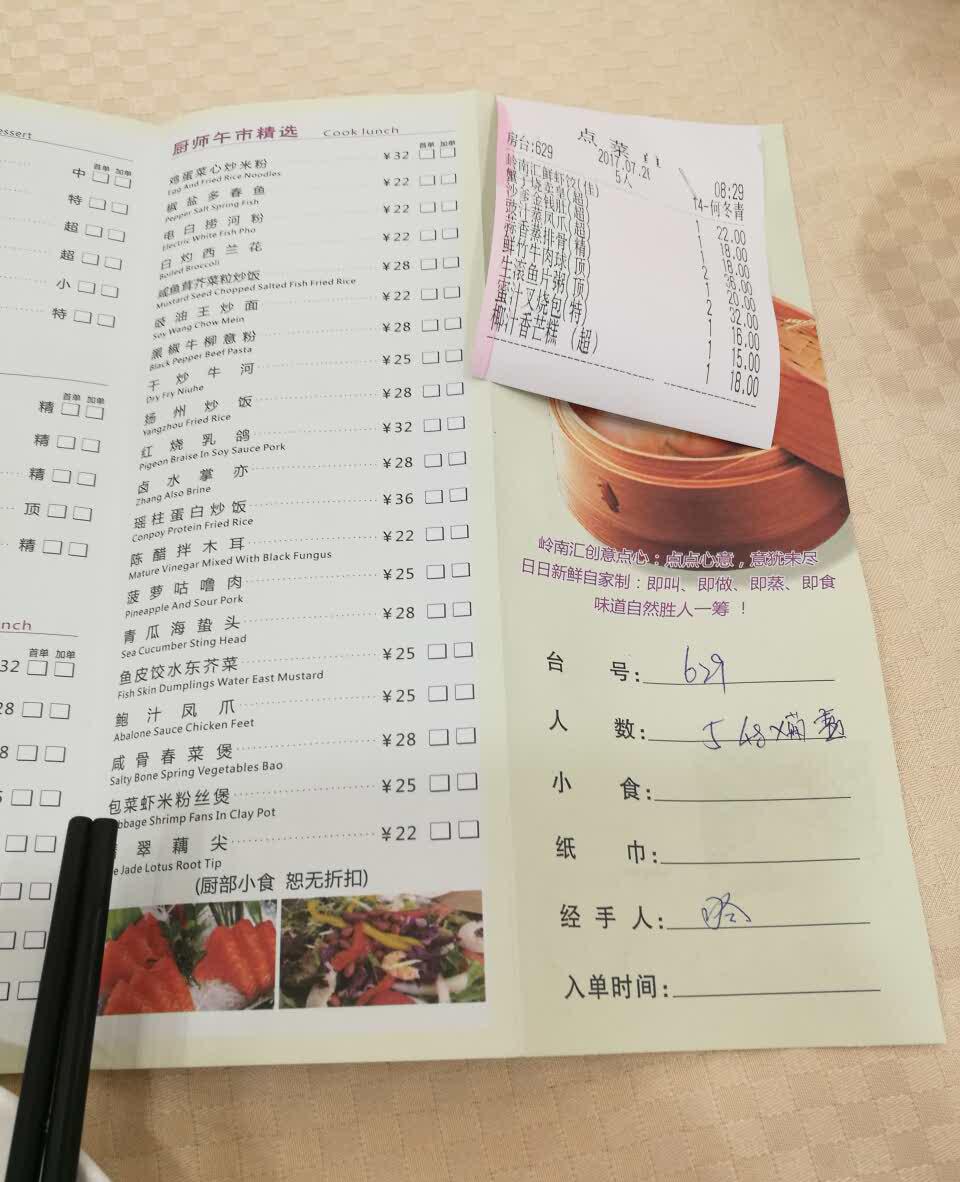 essert
首单 加单
中
特
超
超
小
特
首单 加单
精
精
精
顶
精
nch
首单 加单
32
28
8
5
厨师午市精选 Cook lunch
首单 加单
鸡蛋菜心炒米粉 ¥32
Egg And Fried Rice Noodles
椒盐多春鱼 ¥22
Pepper Salt Spring Fish
电白捞河粉 ¥22
Electric White Fish Pho
白灼西兰花 ¥22
Boiled Broccoli
咸鱼茸芥菜粒炒饭 ¥28
Mustard Seed Chopped Salted Fish Fried Rice
豉油王炒面 ¥22
Soy Wang Chow Mein
黑椒牛柳意粉 ¥28
Black Pepper Beef Pasta
干炒牛河 ¥25
Dry Fry Niuhe
扬州炒饭 ¥28
Yangzhou Fried Rice
红烧乳鸽 ¥32
Pigeon Braise In Soy Sauce Pork
卤水掌亦 ¥28
Zhang Also Brine
瑶柱蛋白炒饭 ¥36
Conpoy Protein Fried Rice
陈醋拌木耳 ¥22
Mature Vinegar Mixed With Black Fungus
菠萝咕噜肉 ¥25
Pineapple And Sour Pork
青瓜海蛰头 ¥28
Sea Cucumber Sting Head
鱼皮饺水东芥菜 ¥25
Fish Skin Dumplings Water East Mustard
鲍汁凤爪 ¥25
Abalone Sauce Chicken Feet
咸骨春菜煲 ¥28
Salty Bone Spring Vegetables Bao
包菜虾米粉丝煲 ¥25
bbage Shrimp Fans In Clay Pot
翠藕尖 ¥22
e Jade Lotus Root Tip
(厨部小食 恕无折扣)
点菜
房台:629 2017.07.2 08:29
5人 14-何冬青
岭南汇鲜虾饺(佳) 1 22.00
蟹子烧卖皇(超) 1 18.00
沙爹金钱肚(超) 1 18.00
豉汁蒸凤爪(超) 2 36.00
蒜香蒸排骨(精) 1 20.00
鲜竹牛肉球(顶) 2 32.00
生滚鱼片粥(顶) 1 16.00
蜜汁叉烧包(特) 1 15.00
椰汁香芒糕(超) 1 18.00
岭南汇创意点心:点点心意,意犹未尽
日日新鲜自家制:即叫、即做、即蒸、即食
味道自然胜人一筹!
台号: 629
人数: 5
小食:
纸巾:
经手人:
入单时间: